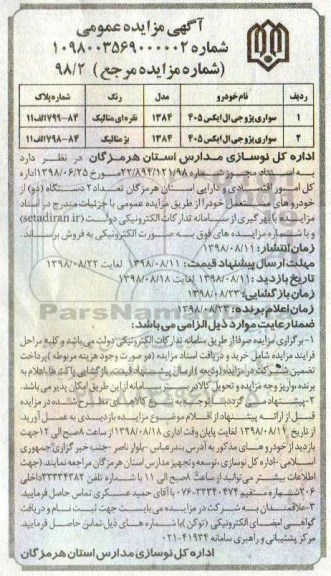 آگهی مزایده عمومی
شماره ۱۰۹۸۰۰۳۵۶۹۰۰۰۰۰۲
(شماره مزایده مرجع) ۹۸/۲
ردیف نام خودرو مدل رنگ شماره پلاک
۱ سواری پژو جی ال ایکس ۴۰۵ ۱۳۸۴ نقره ای متالیک ۸۴-۷۹۹الف۱۱
۲ سواری پژو جی ال ایکس ۴۰۵ ۱۳۸۴ بژ متالیک ۸۴-۷۹۸الف۱۱
اداره کل نوسازی مدارس استان هرمزگان در نظر دارد
به استناد مجوز شماره ۲۲/۸۹۴/۱۲۱/۹۸مورخ ۱۳۹۸/۰۶/۲۵اداره
کل امور اقتصادی و دارایی استان هرمزگان تعداد۲ دستگاه (دو) از
خودرو های مستعمل خود را از طریق مزایده عمومی با جزئیات مندرج در اسناد
مزایده با بهره گیری از سامانه تدارکات الکترونیکی دولت (setadiran.ir)
و با شماره مزایده های فوق به صورت الکترونیکی به فروش برساند.
زمان انتشار: ۱۳۹۸/۰۸/۱۱
مهلت ارسال پیشنهاد قیمت: ۱۳۹۸/۰۸/۱۱ لغایت ۱۳۹۸/۰۸/۲۲
تاریخ بازدید: ۱۳۹۸/۰۸/۱۱ لغایت ۱۳۹۸/۰۸/۱۸
زمان بازگشایی: ۱۳۹۸/۰۸/۲۳
زمان اعلام برنده: ۱۳۹۸/۰۸/۲۳
ضمنا رعایت موارد ذیل الزامی می باشد:
۱-برگزاری مزایده صرفا از طریق سامانه تدارکات الکترونیکی دولت می باشد و کلیه مراحل
فرایند مزایده شامل خرید و دریافت اسناد مزایده (در صورت وجود هزینه مربوطه)پرداخت
تضمین شرکت در مزایده (ودیعه) ارسال پیشنهاد قیمت، بازگشایی پاکت ها اعلام به
برنده واریز وجه مزایده و تحویل کالا در بستر سامانه از این طریق امکان پذیر می باشد.
۲-پیشنهاد می گردد با توجه به تنوع کالاهای مطرح شده در مزایده
قبل از ارائه پیشنهاد از اقلام موضوع مزایده بازدیدی به عمل آورید.
از تاریخ ۱۳۹۸/۰۸/۱۲ لغایت پایان وقت اداری ۱۳۹۸/۰۸/۱۸ از ساعت ۸صبح الی ۱۲جهت
بازدید از خودرو های مذکور به آدرس بندرعباس -بلوار ناصر -جنب خبرگزاری جمهوری
اسلامی -اداره کل نوسازی ،توسعه و تجهیز مدارس استان هرمزگان مراجعه نمایند.(جهت
اطلاعات بیشتر می توانید از ساعت ۸صبح الی ۱۱ با شماره تلفن ۳۳۳۳۴۳۸۲داخلی
۲۰۶وشماره مستقیم ۳۳۳۴۰۴۷۴-۰۷۶ با آقای حمید عسکری تماس حاصل فرمایید.
۳-علاقمندان به شرکت در مزایده می بایست جهت ثبت نام و دریافت
گواهی امضای الکترونیکی (توکن )با شماره های ذیل تماس حاصل فرمایید.
مرکز پشتیبانی و راهبری سامانه ۴۱۹۳۴-۰۲۱
اداره کل نوسازی مدارس استان هرمزگان